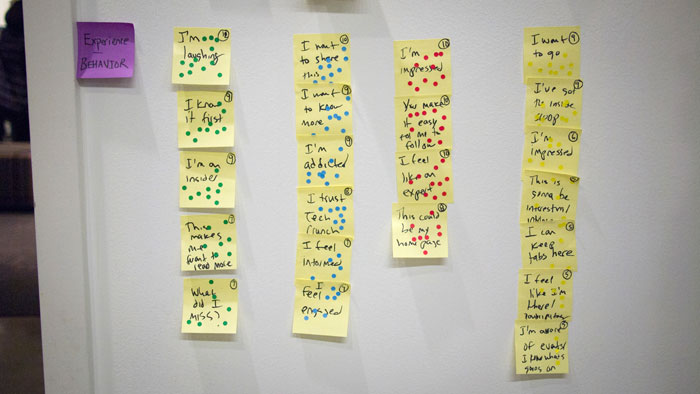 Experience -
BEHAVIOR
I'm
laughing
I know
it first
9
I'm an
insider
9
This
makes
me
want to
read more
7
What
did I
MISS?
7
I want
to share
this
10
I want
to know
more
9
I'm
addicted
9
I trust
Tech
Crunch
8
I feel
informed
7
I
feel
engaged
7
I'm
impressed
10
You make
it easy
for me to
follow
10
I feel
like an
expert
10
This could
be my
home page
8
I want
to go
9
I've got
the inside
scoop
7
I'm
impressed
6
This is
gonna be
interesting/
I can
keep
tabs here
5
I feel
like I'm
there/
5
I'm aware
of events/
I know what's
going on
5